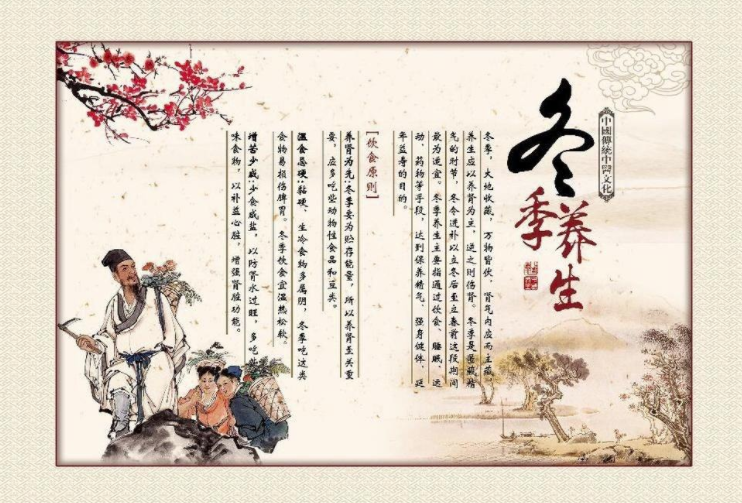 中國傳統中醫文化
冬季养生
冬季，大地收藏，万物皆伏，肾气内应而主藏，
养生应以养肾为主，逆之则伤肾。冬季是匿藏精
气的时节，冬令进补以立冬后至立春前这段期间
最为适宜。冬季养生主要指通过饮食、睡眠、运
动、药物等手段，达到保养精气、强身健体、延
年益寿的目的。
【饮食原则】
养肾为先:冬季要为贮存能量，所以养肾至关重
要，应多吃些动物性食品和豆类。
温食忌硬:黏硬、生冷食物多属阴，冬季吃这类
食物易损伤脾胃。冬季饮食宜温热松软。
增苦少咸:少食咸盐，以防肾水过旺，多吃
味食物，以补益心脏，增强肾脏功能。